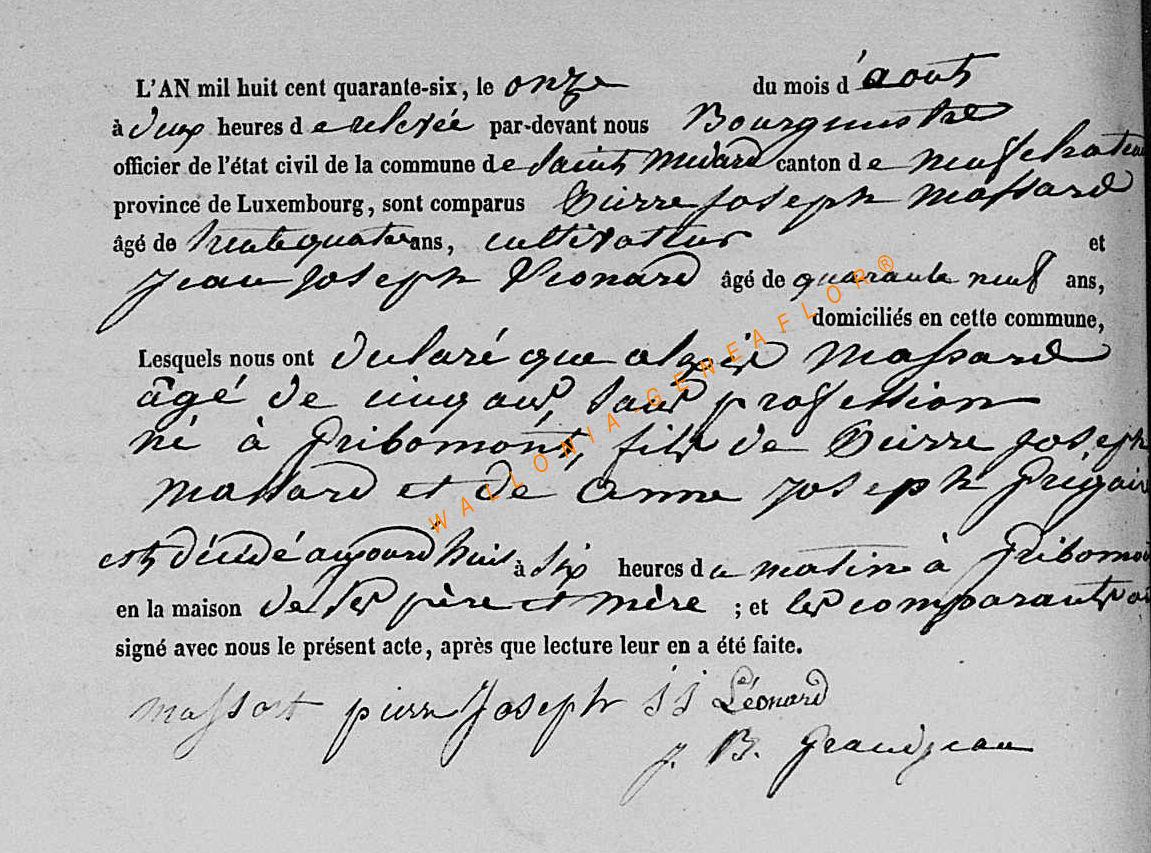 L'AN mil huit cent quarante-six, le onze du mois d'aout
à deux heures de relevée par-devant nous Bourgmestre
officier de l'état civil de la commune de Saint Medard canton de neufchateau
province de Luxembourg, sont comparus Pierre Joseph Massard
âgé de trente quatre ans, cultivateur et
Jean Joseph Léonard âgé de quarante neuf ans,
domiciliés en cette commune,
Lesquels nous ont declaré que Massard
âgé de cinq ans, sans profession
né à Gribomont, fils de Pierre Joseph
Massard et de Anne Joseph
est décédé aujourd'huit à six heures du matin à Gribomont
en la maison de ses père et mère ; et les comparants ont
signé avec nous le présent acte, après que lecture leur en a été faite.
Massart pierre Joseph J J Léonard
J. B. Grandjean
WALLONIA-GENEAFLOR®